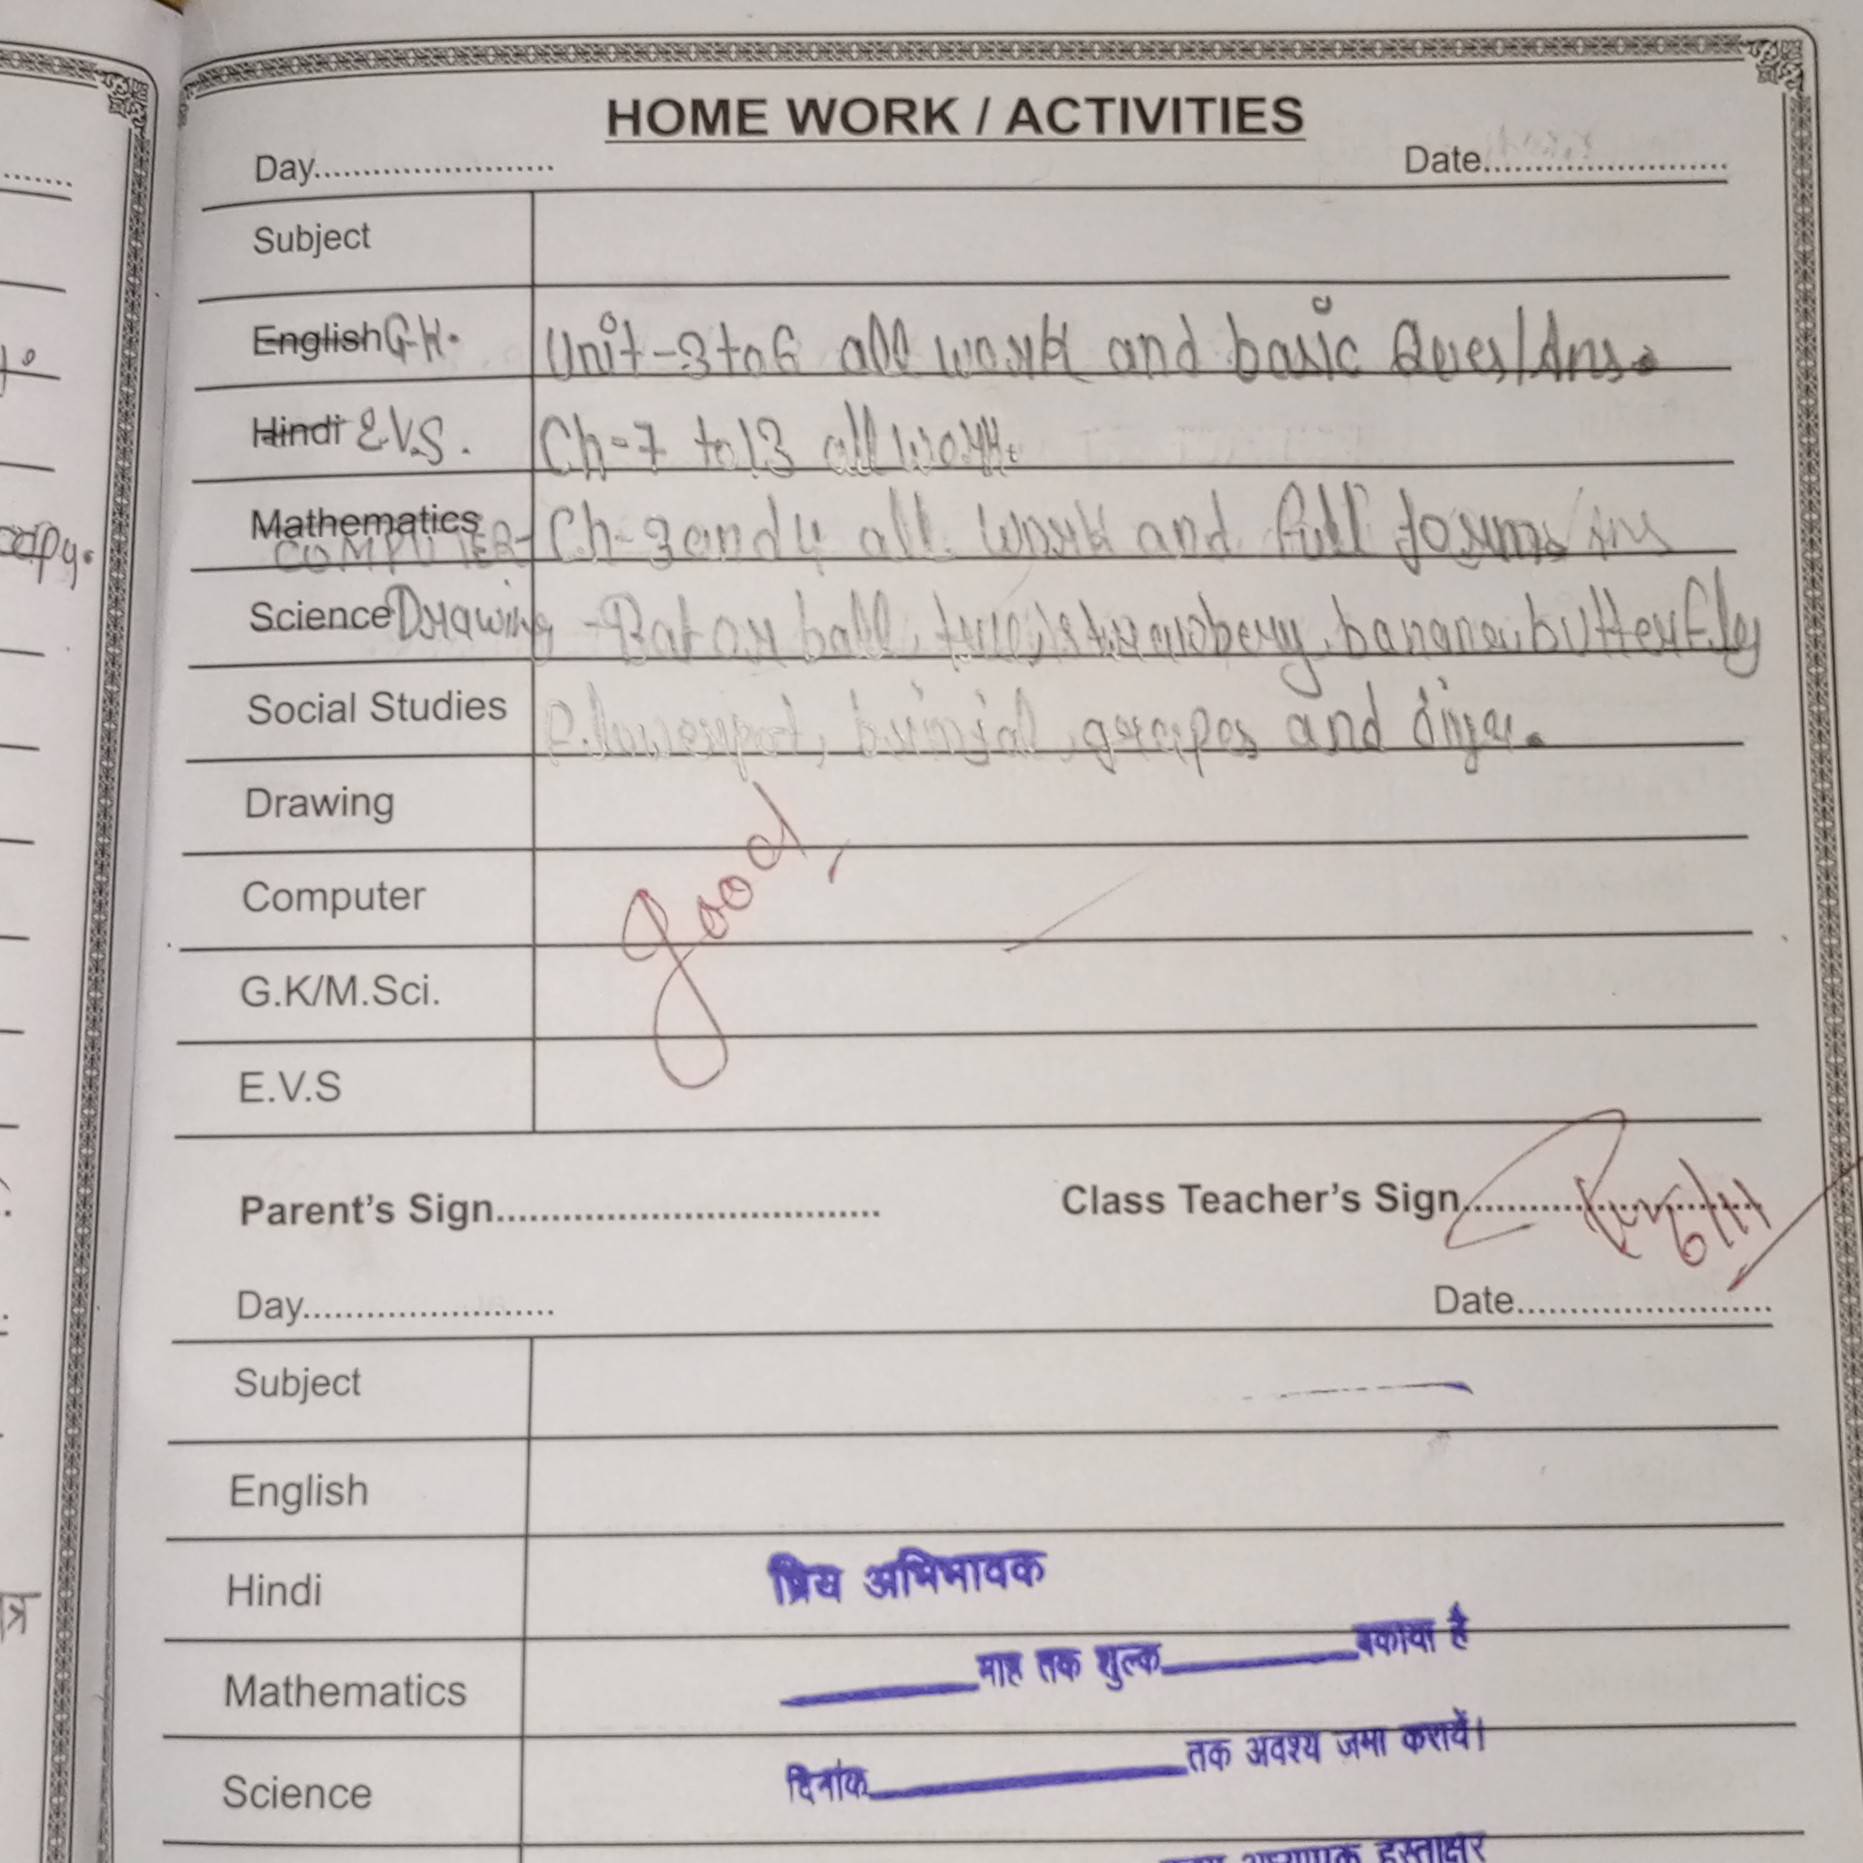 HOME WORK / ACTIVITIES
Day........................ Date........................
Subject
English G.K. Unit-3 to 6 all work and basic Ques/Ans.
Hindi E.V.S. Ch-7 to 13 all work.
Mathematics COMPUTER- Ch-3 and 4 all work and full forms
Science Drawing - Bat or ball, tree, strawbery, banana, butterfly
Social Studies Flowerpot, brinjal, grapes and diya.
Drawing
Computer
good,
G.K/M.Sci.
E.V.S
Parent's Sign.................................... Class Teacher's Sign............................
6/11
Day........................ Date........................
Subject
English
Hindi प्रिय अभिभावक
_______माह तक शुल्क_______बकाया है
Mathematics
दिनांक___________तक अवश्य जमा करायें।
Science
हस्ताक्षर
copy.